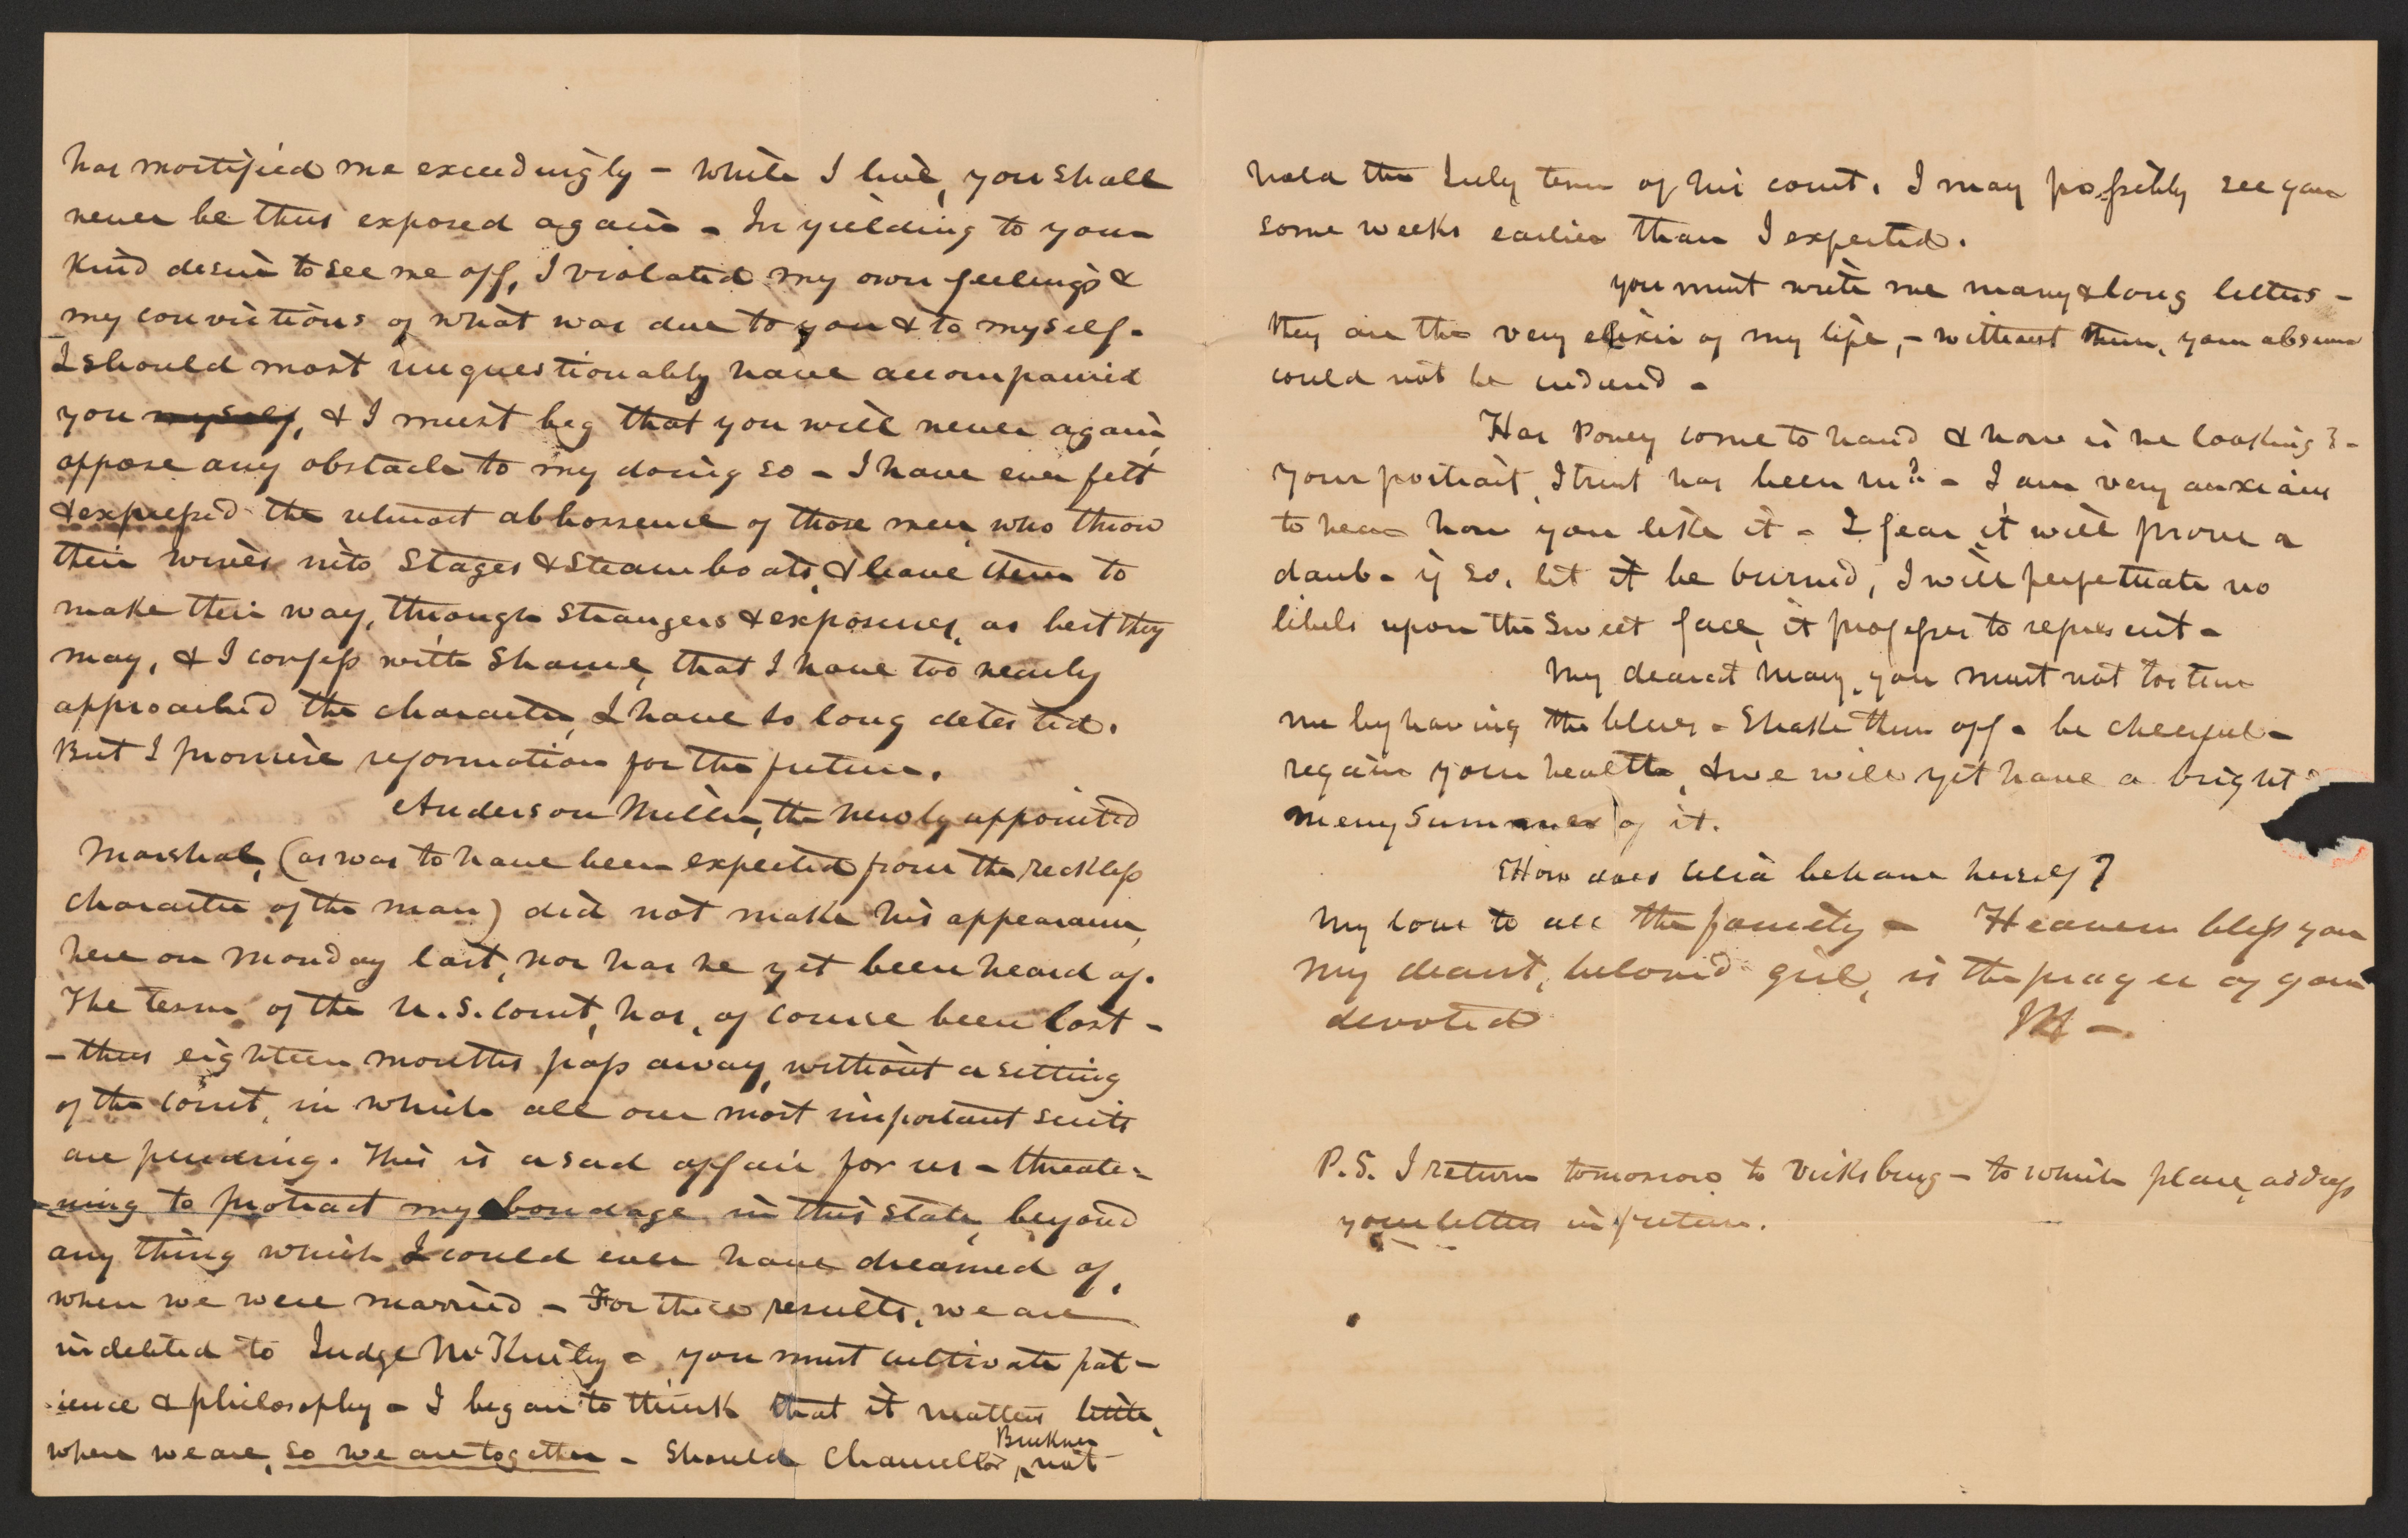 has mortified me exceedingly - while I live, you shall
never be thus exposed again - In yielding to your
kind desire to see me off, I violated my own feelings &
my convictions of what was due to you & to myself -
I should most unquestionably have accompanied
you myself, & I must beg that you will never again
oppose any obstacle to my doing so - I have ever felt
& expressed the utmost abhorrence of those men, who throw
their wives into Stages & Steamboats, & leave them to
make their way, through strangers & exposures, as best they
may, & I confess with shame, that I have too nearly
approached the character, I have so long detested.
But I promise reformation for the future.
Anderson Miller, the newly appointed
Marshal, (as was to have been expected from the reckless
character of the man) did not make his appearance,
here on Monday last, nor has he yet been heard of.
The term of the U.S. Court, has, of course been lost -
- thus eighteen months pass away, without a sitting
of the Court, in which all our most important suits
are pending. This is a sad affair for us - threate-
-ning to protract my bondage in this State, beyond
any thing which I could ever have dreamed of,
when we were married - For these results, we are
indebted to Judge McKinley - you must cultivate pat-
-ience & philosophy - I began to think that it matters little,
where we are, so we are together - Should Chancellor Buckner not
hold the July term of his court, I may possibly see you
some weeks earlier than I expected.
you must write me many & long letters -
they are the very elixir of my life, - without them, your absence
could not be endured -
Has Poney come to hand & how is he looking? -
your portrait, I trust has been recd. - I am very anxious
to hear how you like it - I fear it will prove a
daub - if so, let it be burned, I will perpetuate no
libels upon the sweet face, it professes to represent -
My dearest Mary, you must not torture
me by having the blues - Shake them off - be cheerful -
regain your health, & we will yet have a bright &
merry Summer of it.
How does Celia behave herself?
My love to all the family - Heaven bless you
my dearest, beloved girl, is the prayer of your
devoted
P.S. I return tomorrow to Vicksburg - to which place, address
your letters in future.